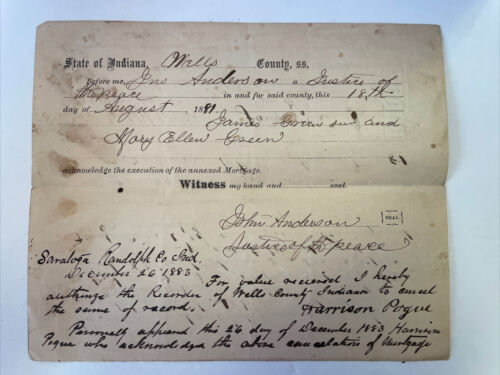 State of Indiana, Wells County, ss.
Before me, Jno Anderson a Justice of
the peace in and for said county, this 18th
day of August 1881, James Green and
Mary Ellen Green
acknowledge the execution of the annexed Mortgage.
Witness my hand and seal.
John Anderson SEAL.
Justice of the peace
Saratoga Randolph Co Ind.
December 26 1883
For value received I hereby
authorize the Recorder of Wells County Indiana to cancel
the same of record. Harrison Pogue
Personally appeared this 26 day of December 1883 Harrison
Pogue who acknowledged the above cancelation of Mortgage